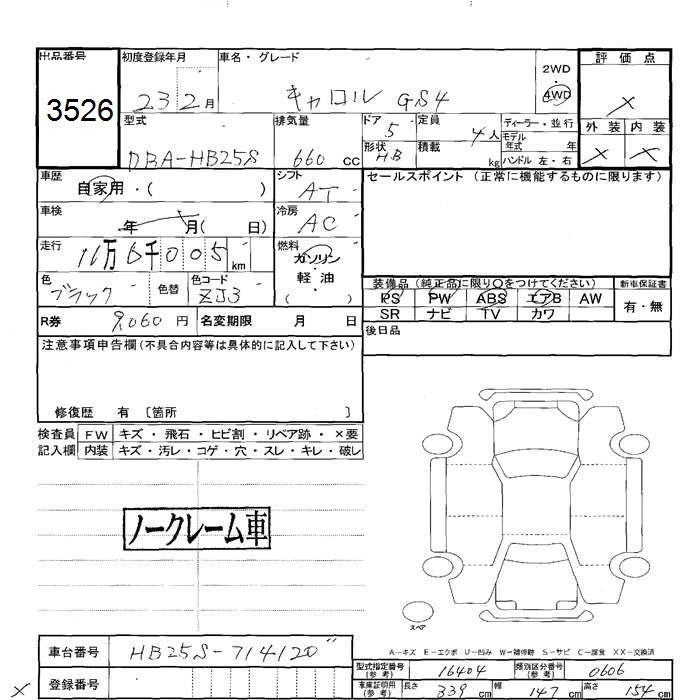 出品番号 初度登録年月 車名・グレード 評価点
3526 23 2月 キャロル GS4 2WD 4WD ×
型式 排気量 ドア 5 定員 4人 ディーラー・並行 外装 内装
DBA-HB25S 660 cc 形状 HB 積載 kg モデル年式 年 ハンドル 左・右 × ×
車歴 自家用・( ) シフト AT セールスポイント (正常に機能するものに限ります)
車検 年 月( 日) 冷房 AC
走行 11万6千005km 燃料 ガソリン・軽油 ( )
色 ブラック 色替 色コード ZJ3 装備品 (純正品に限り○をつけてください) 新車保証書
PS PW ABS エアB AW 有・無
SR ナビ TV カワ
R券 9,060円 名変期限 月 日 後日品
注意事項申告欄(不具合内容等は具体的に記入して下さい)
修復歴 有 〔箇所 〕
検査員 FW キズ・飛石・ヒビ割・リペア跡・×要
記入欄 内装 キズ・汚レ・コゲ・穴・スレ・キレ・破レ
ノークレーム車
スペア
A-キズ E-エクボ U-凹み W-補修跡 S-サビ C-腐食 XX-交換済
車台番号 HB25S-714120 型式指定番号(参考) 16404 類別区分番号(参考) 0606
× 登録番号 車庫証明用(参考) 長さ 339cm 幅 147cm 高さ 154cm